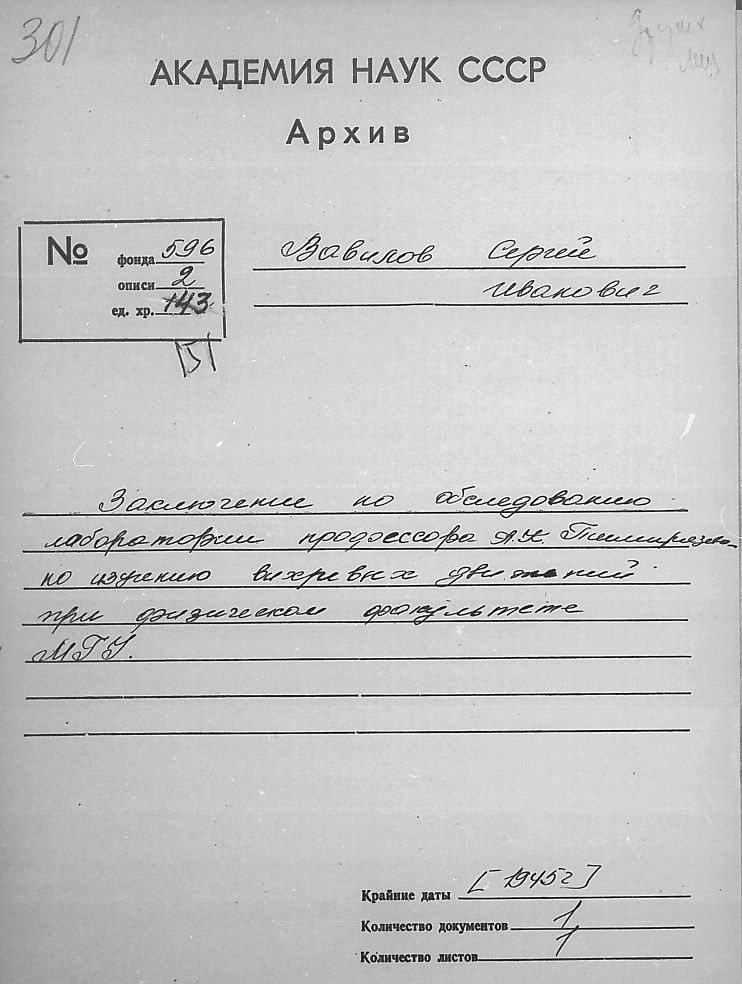 301
других
лиц
АКАДЕМИЯ НАУК СССР
Архив
№
фонда 596
описи 2
ед. хр. 143
151
Вавилов Сергей
Иванович
Заключение по обследованию
лаборатории профессора А.К. Тимирязева
по изучению вихревых движений
при физическом факультете
МГУ.
Крайние даты [1945г]
Количество документов 1
Количество листов 1